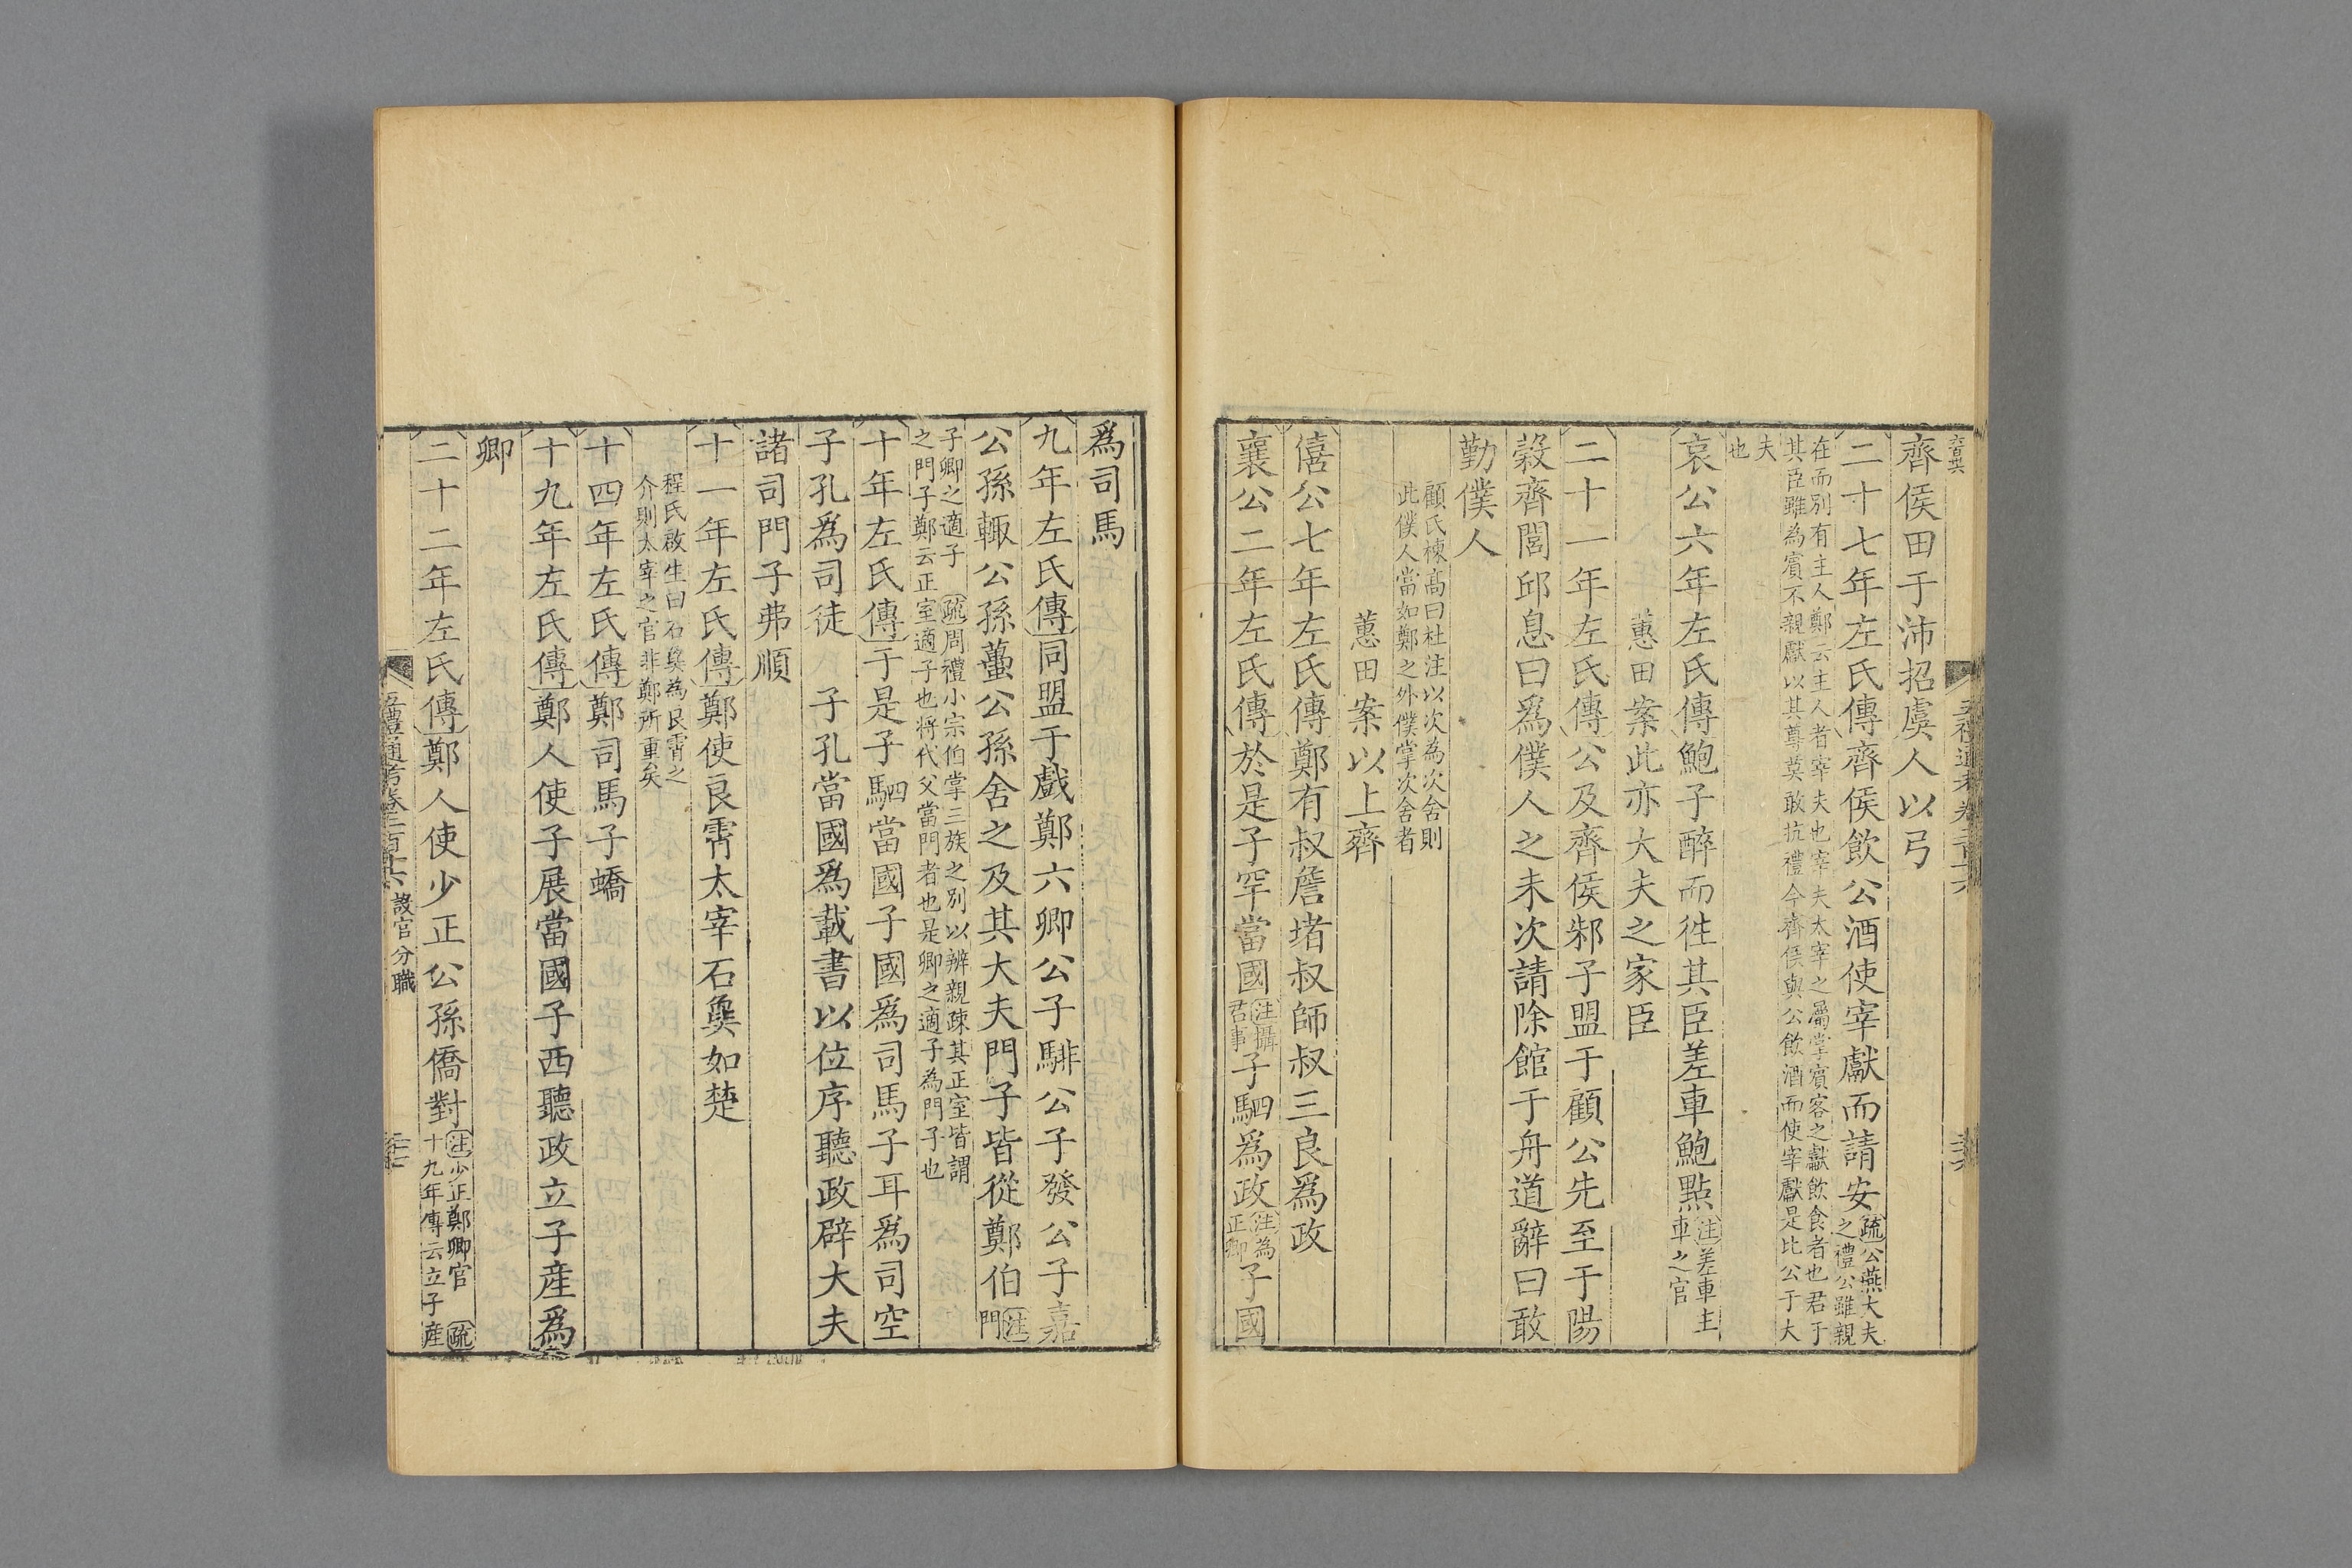 齊侯田于沛招虞人以弓
二十七年左氏傳齊侯飲公酒使宰獻而請安疏公燕大夫之禮公雖親
在而別有主人鄭云主人者宰夫也宰夫太宰之屬掌賓客之獻飲食者也君于
其臣雖為賓不親獻以其尊莫敢抗禮今齊侯與公飲酒而使宰獻是比公于大
夫也
哀公六年左氏傳鮑子醉而徃其臣差車鮑點注差車主車之官
蕙田案此亦大夫之家臣
二十一年左氏傳公及齊侯邾子盟于顧公先至于陽
穀齊閭邱息曰爲僕人之未次請除館于舟道辭曰敢
勤僕人
顧氏棟高曰杜注以次為次舍則
此僕人當如鄭之外僕掌次舍者
蕙田案以上齊
僖公七年左氏傳鄭有叔詹堵叔師叔三良爲政
襄公二年左氏傳於是子罕當國注攝君事子駟爲政注為正卿子國
爲司馬
九年左氏傳同盟于戲鄭六卿公子騑公子發公子嘉
公孫輙公孫蠆公孫舍之及其大夫門子皆從鄭伯注門
子卿之適子 疏周禮小宗伯掌三族之別以辨親疎其正室皆謂
之門子鄭云正室適子也將代父當門者也是卿之適子為門子也
十年左氏傳于是子駟當國子國爲司馬子耳爲司空
子孔爲司徒 子孔當國爲載書以位序聽政辟大夫
諸司門子弗順
十一年左氏傳鄭使良霄太宰石㚟如楚
程氏啟生曰石㚟為良霄之
介則太宰之官非鄭所重矣
十四年左氏傳鄭司馬子蟜
十九年左氏傳鄭人使子展當國子西聽政立子產爲
卿
二十二年左氏傳鄭人使少正公孫僑對注少正鄭卿官 疏十九年傳云立子產
五禮通考卷二百十六 設官分職